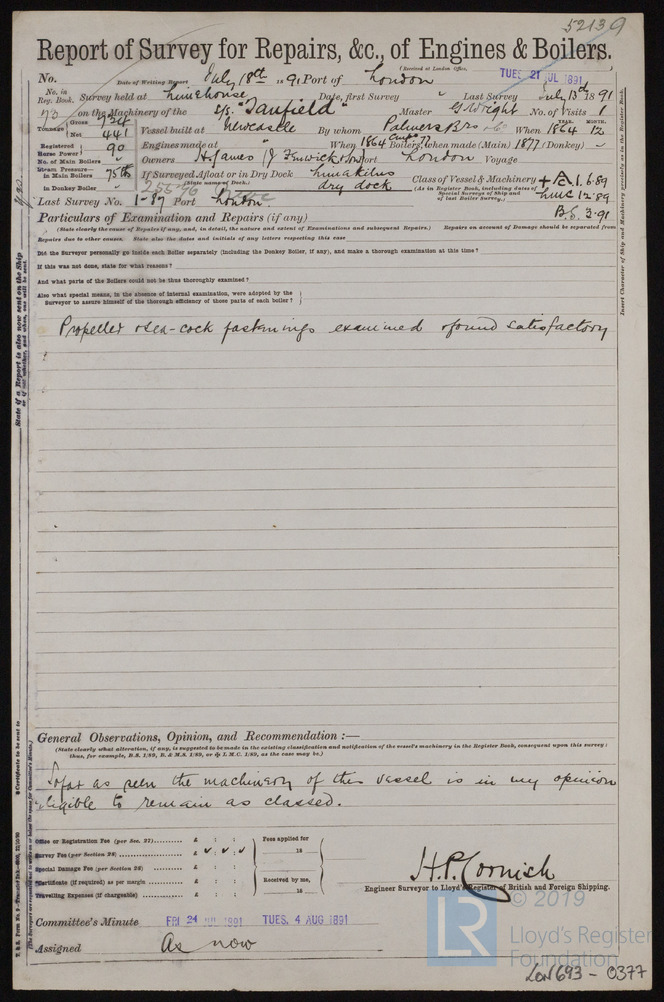 52139
Report of Survey for Repairs, &c., of Engines & Boilers.
(Received at London Office, TUES. 21 JUL 1891
No. Date of Writing Report July 18th 1891 Port of London
No. in Reg. Book. Survey held at Limehouse Date, first Survey " Last Survey July 13th 1891
73 on the Machinery of the S/S. "Tanfield" Master G Wright No. of Visits 1
Tonnage Gross 734 Net 441 Vessel built at Newcastle By whom Palmers Bros & Co When 1864 YEAR. MONTH. 12
Registered Horse Power 90 Engines made at " When 1864 Boilers, when made (Main) 1877 (Donkey) ~
No. of Main Boilers " Owners H. James (J Fenwick & Son Port London Voyage
Steam Pressure— in Main Boilers 75 lbs If Surveyed Afloat or in Dry Dock Limekilns dry dock Class of Vessel & Machinery + A 1. 6.89
in Donkey Boiler ~ (State name of Dock.) (As in Register Book, including dates of Special Surveys of Ship and of last Boiler Survey.) LMC 12.89
Last Survey No. 1-87 Port London. B.S. 3.91
Particulars of Examination and Repairs (if any)
(State clearly the cause of Repairs if any, and, in detail, the nature and extent of Examinations and subsequent Repairs.) Repairs on account of Damage should be separated from
Repairs due to other causes. State also the dates and initials of any letters respecting this case
Did the Surveyor personally go inside each Boiler separately (including the Donkey Boiler, if any), and make a thorough examination at this time?
If this was not done, state for what reasons?
And what parts of the Boilers could not be thus thoroughly examined?
Also what special means, in the absence of internal examination, were adopted by the
Surveyor to assure himself of the thorough efficiency of those parts of each boiler?
Propeller & sea-cock fastenings examined & found satisfactory
General Observations, Opinion, and Recommendation :—
(State clearly what alteration, if any, is suggested to be made in the existing classification and notification of the vessel's machinery in the Register Book, consequent upon this survey:
thus, for example, B.S. 1/89, B. & M.S. 1/89, or L.M.C. 1/89, as the case may be.)
So far as seen the machinery of this vessel is in my opinion
eligible to remain as classed.
Office or Registration Fee (per Sec. 27) £ : : Fees applied for
Survey Fee (per Section 28) £ : : 18
Special Damage Fee (per Section 28) £ : :
*Certificate (if required) as per margin £ : : Received by me,
Travelling Expenses (if chargeable) £ : : 18
H.P. Cornish
Engineer Surveyor to Lloyd's Register of British and Foreign Shipping.
Committee's Minute FRI. 24 JUL 1891 TUES. 4 AUG 1891
Assigned As now
© 2019
LR
Lloyd's Register
Foundation
LON693 - 0377
State if a Report is also now sent on the Ship
Insert Character of Ship and Machinery precisely as in the Register Book.